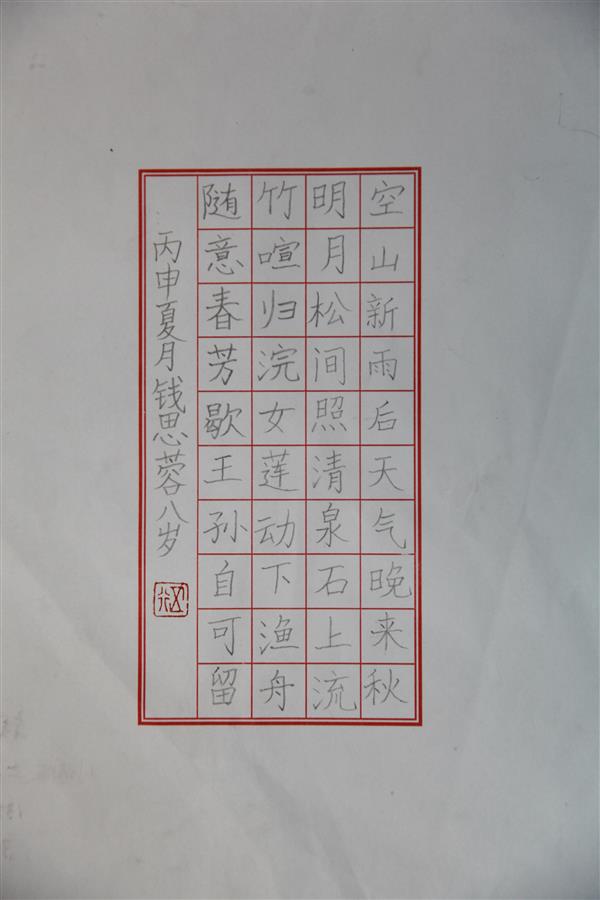 空山新雨后天气晚来秋
明月松间照清泉石上流
竹喧归浣女莲动下渔舟
随意春芳歇王孙自可留
丙申夏月钱思蓉八岁